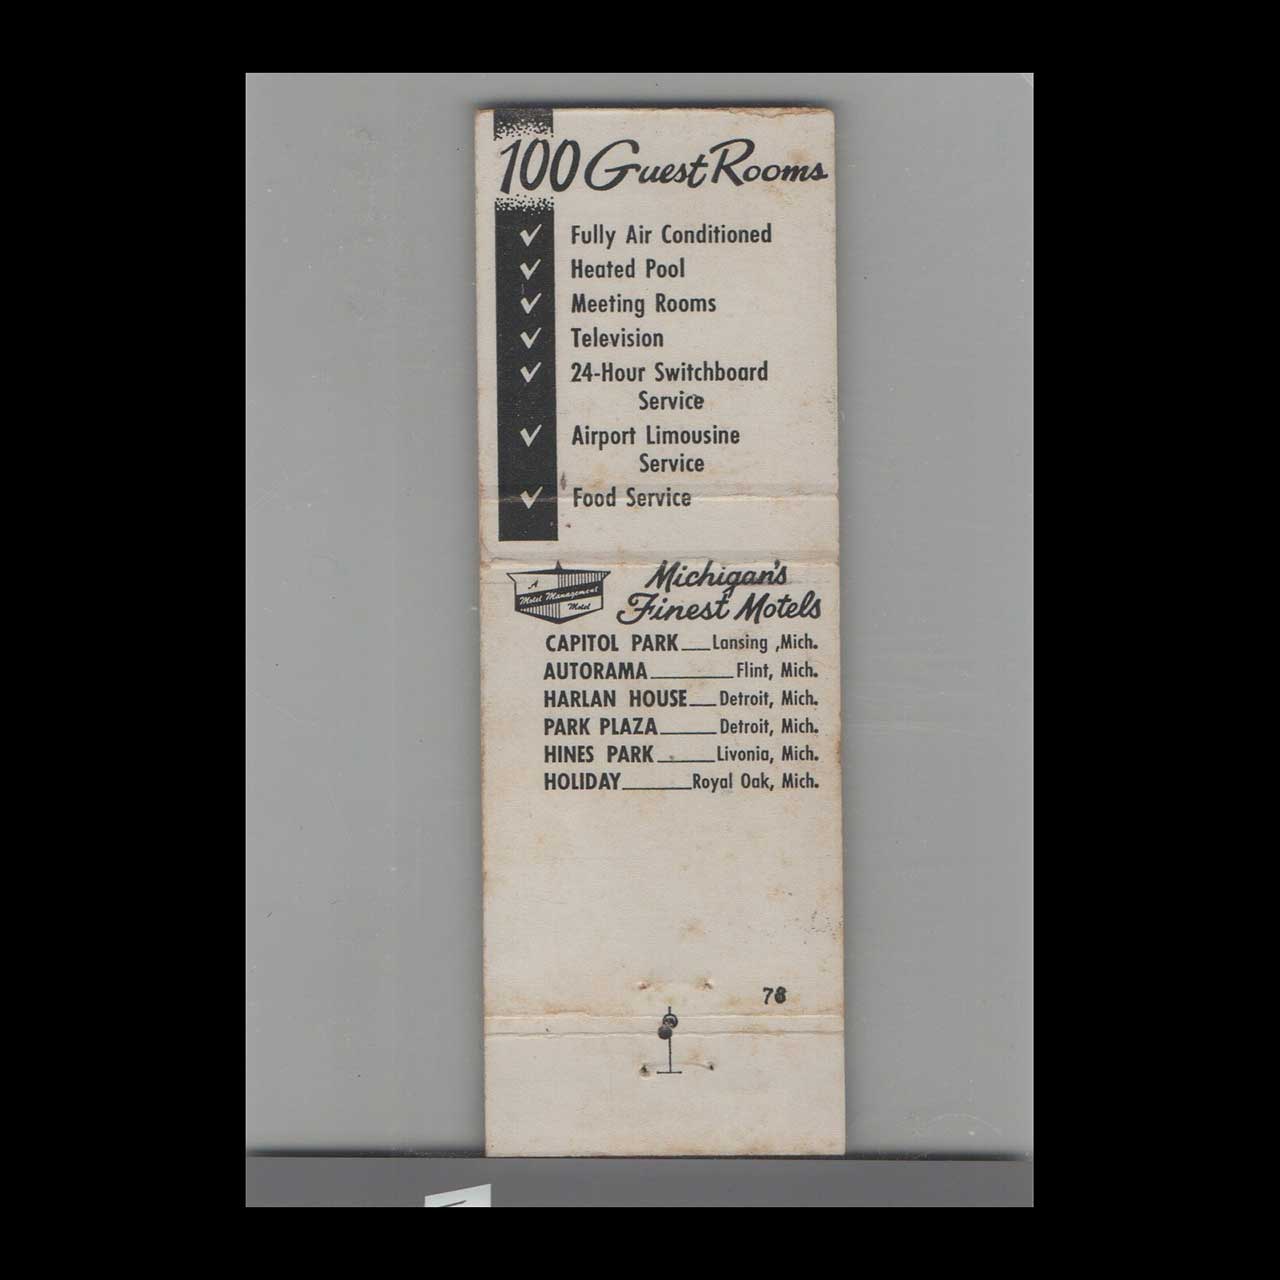 100 Guest Rooms
✓ Fully Air Conditioned
✓ Heated Pool
✓ Meeting Rooms
✓ Television
✓ 24-Hour Switchboard
Service
✓ Airport Limousine
Service
✓ Food Service
A
Motel Management
Motel
Michigan's
Finest Motels
CAPITOL PARK___Lansing ,Mich.
AUTORAMA_________Flint, Mich.
HARLAN HOUSE___Detroit, Mich.
PARK PLAZA______Detroit, Mich.
HINES PARK______Livonia, Mich.
HOLIDAY________Royal Oak, Mich.